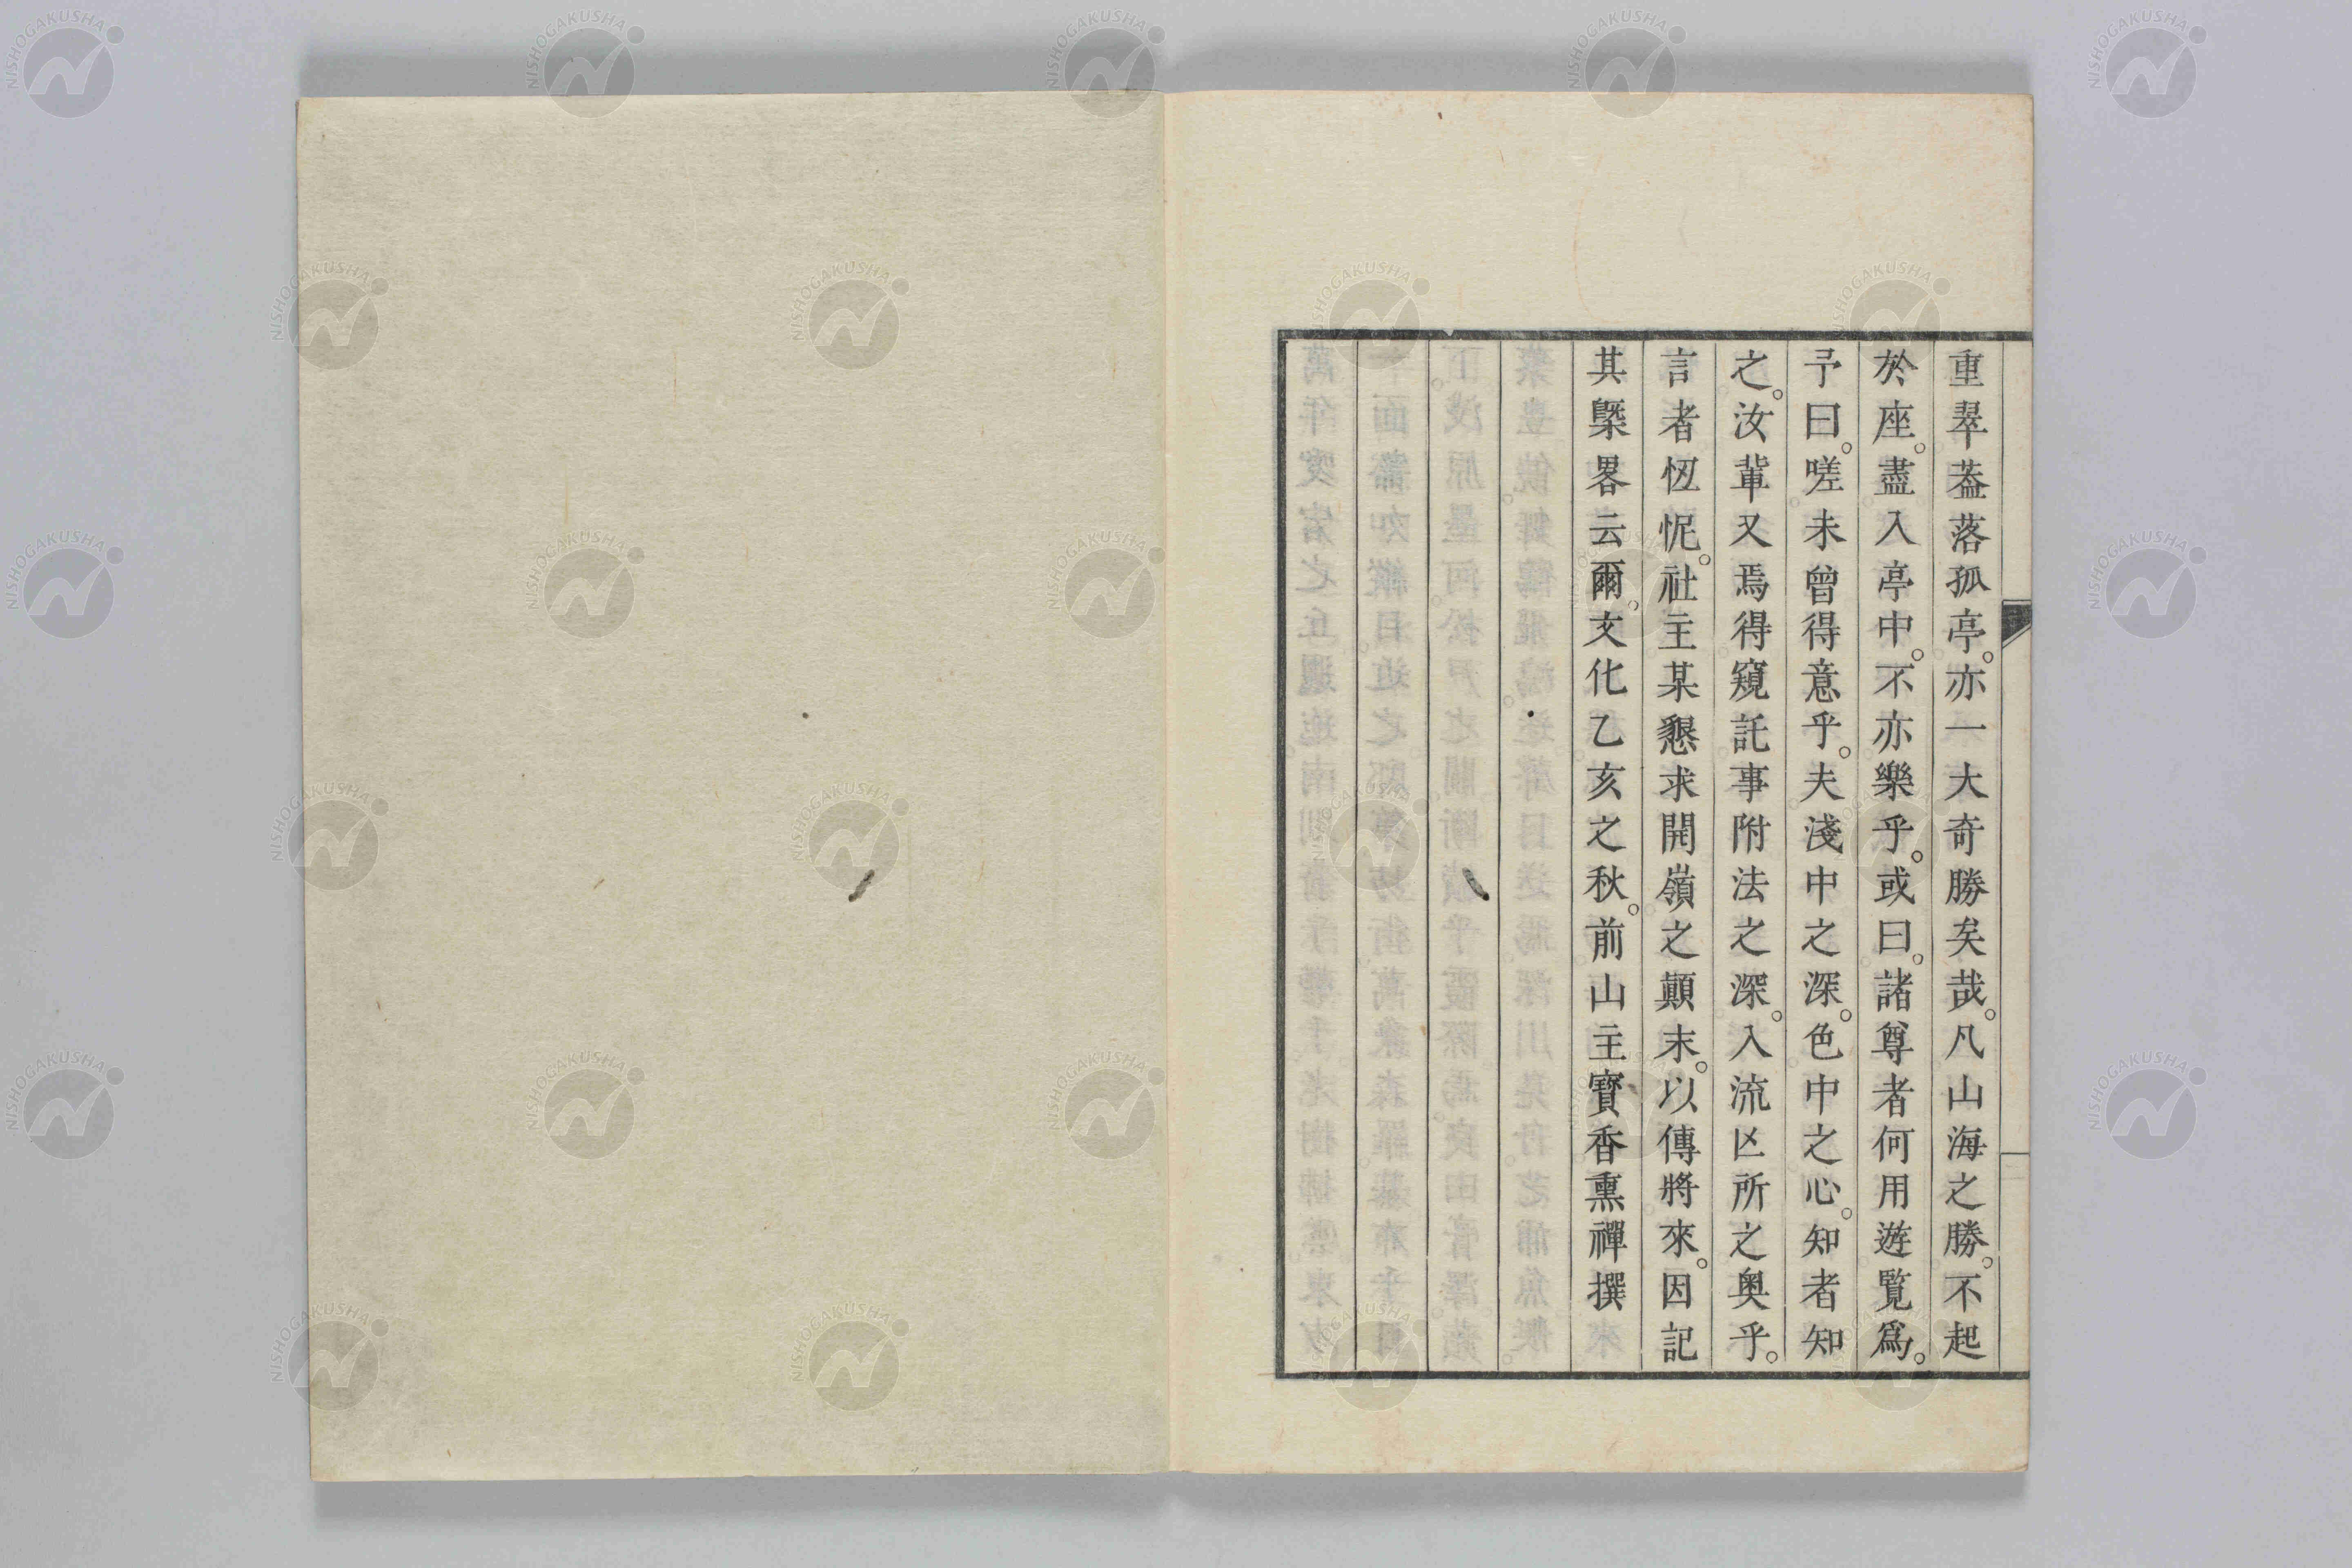 重翠葢落孤亭。亦一大奇勝矣哉。凡山海之勝。不起
於座。盡入亭中。不亦樂乎。或曰。諸尊者何用遊覧爲。
予曰。嗟未曾得意乎。夫淺中之深。色中之心。知者知
之。汝輩又焉得窺託事附法之深。入流亡所之奥乎。
言者忸怩。社主某懇求開嶺之顚末。以傳將來。因記
其槩畧云爾。文化乙亥之秋。前山主寳香熏禪撰
NISHOGAKUSHA